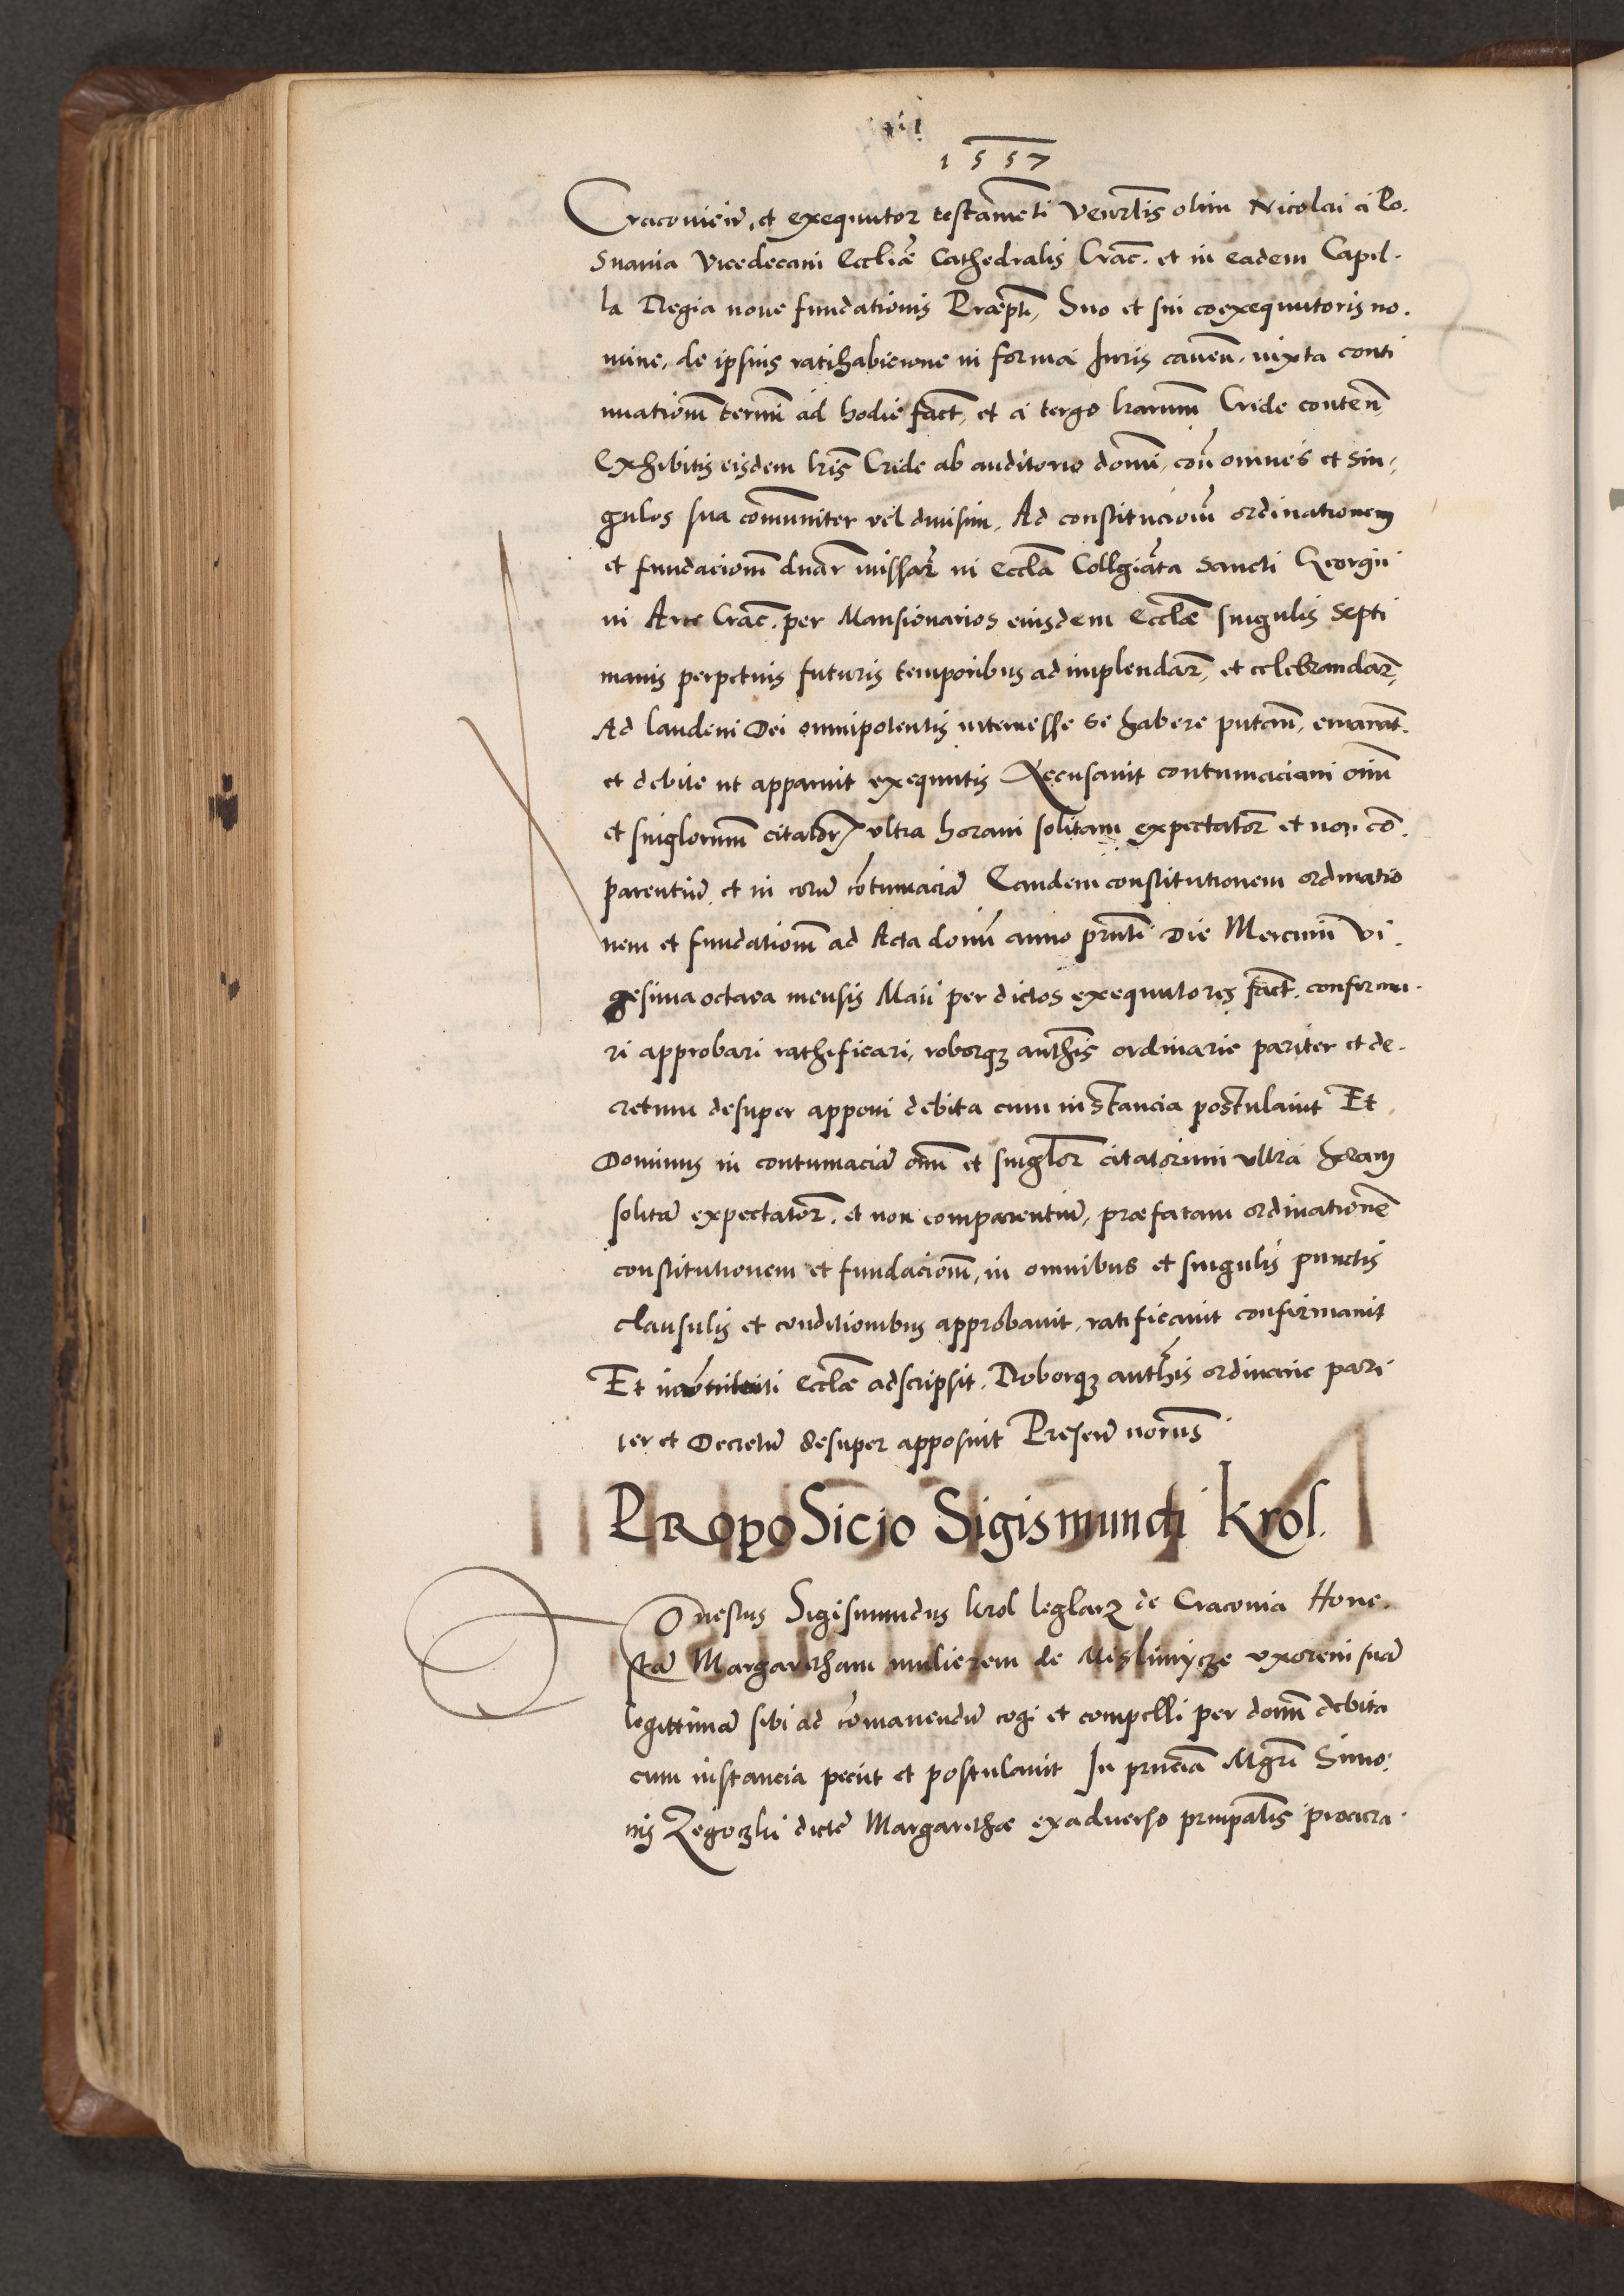 1557
Cracovień, et exequutor testamēti Venrłis olim Nicolai a Po.
Snania Vicedecani Eccliæ Cathedralis Crac. et in eadem Capel.
la Regia nove fundationis Præpti, Suo et sui coexequutoris no.
mine, de ipsius ratihabicione in forma Juris caven. iuxta conti
nuationem termi ad hodie fact, et a tergo lrarum Cride conten,
Exhibitis eisdem lris Cride ab auditorio domi, con omnes et sin,
gulos sua comuniter vel divisim, Ad constitucionem ordinationem
et fundacionem duar missar in Eccla Collgiata Sancti Georgii
in Arce Crac. per Mansionarios eiusdem Ecclæ singulis Septi
manis perpetuis futuris temporibus adimplendar, et celebrandar,
Ad laudem Dei omnipotentis interesse se habere putan, emanat.
et debite ut apparuit exequutis Accusavit contumaciam oim
et singlorum citator ultra horam solitam expectator et non cō.
parentiū, et in eorū cōtumaciā Eandem constitutionem ordinatio
nem et fundationem ad Acta domi anno prnti Die Mercurii Vi.
gesima octava mensis Maii per dictos exequutores fact. confirma.
ri approbari rathificari, roborqȝ authis ordinarie pariter et de.
cretum desuper apponi debita cum instancia postulavit Et
Dominus in contumaciā oim et singlor citatorum ultra horam
solitā expectator. et non comparentiū, præfatam ordinationē
constitutionem et fundacionem, in omnibus et singulis punctis
clausulis et conditionibus approbavit, ratificavit confirmavit
Et Ecclæ adscripsit. Roborqȝ authis ordinarie pari
ter et Decretū desuper apposuit Presen
Proposicio Sigismundi Krol.
Onestus Sigismundus krol leglarz de Cracovia Hone.
stā Margaretham mulierem de Mislimycze uxorem suā
legittimā sibi ad cōmanendū cogi et compelli per domm debita
cum instancia peciit et postulavit In prnciā Mgri Simo.
nis Zegoczki dicte Margarethæ ex adverso prncipalis procura.